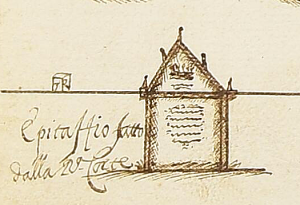 Epitaffio fatto
dalla R. Corte